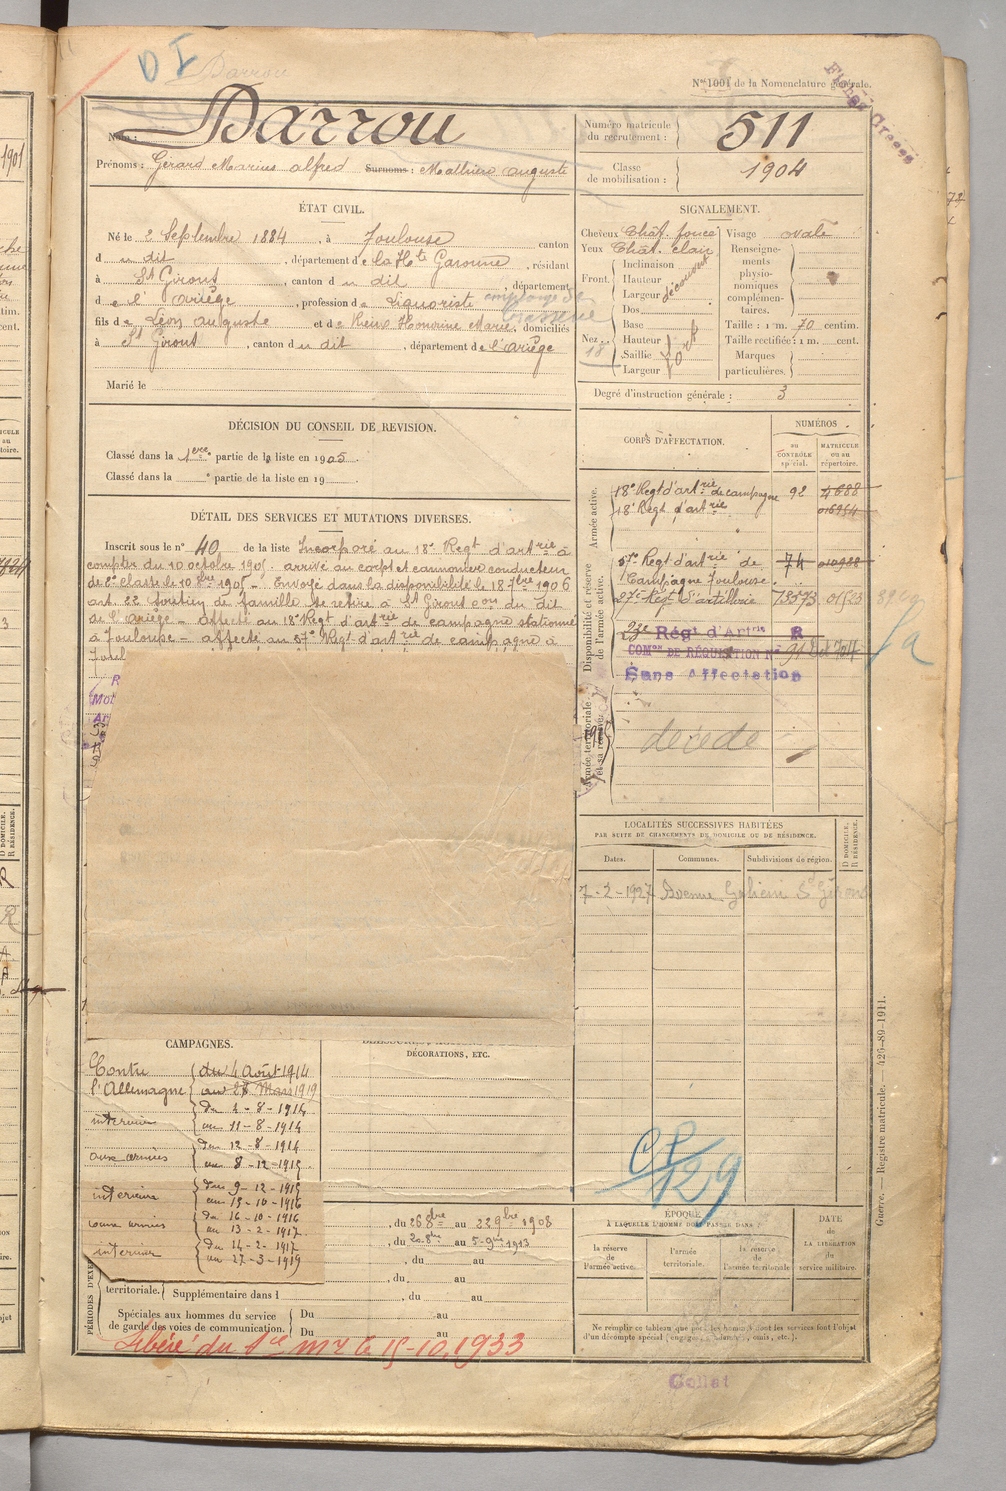 D I Darrou
Nº 1001 de la Nomenclature générale.
Nom : Darrou
Prénoms : Gérard Marius Alfred Surnoms : Mathieu Auguste
Numéro matricule du recrutement : 511
Classe de mobilisation : 1904
ÉTAT CIVIL.
Né le 2 Septembre 1884, à Toulouse canton
d u dit, département de la Hte Garonne, résidant
à St Girons, canton d u dit, département
d e l'Ariège, profession de Liquoriste employé de brasserie
fils de Léon Auguste et de Rieux Honorine Marie, domiciliés
à St Girons, canton du dit, département de l'Ariège
Marié le
SIGNALEMENT.
Cheveux Chât. foncé Visage ovale
Yeux Chât. clair
Front. Inclinaison Hauteur Largeur découvert
Nez. Dos Base Hauteur Saillie Largeur fort
18
Renseignements physionomiques complémentaires.
Taille : 1 m. 70 centim.
Taille rectifiée : 1 m. cent.
Marques particulières.
Degré d'instruction générale : 3
DÉCISION DU CONSEIL DE REVISION.
Classé dans la 1ère partie de la liste en 1905
Classé dans la partie de la liste en 19
DÉTAIL DES SERVICES ET MUTATIONS DIVERSES.
Inscrit sous le nº 40 de la liste Incorporé au 18e Régt d'artrie à
compter du 10 octobre 1905. arrivé au corps et canonnier conducteur
de 2e classe le 10 8bre 1905 – Envoyé dans la disponibilité le 18 7bre 1906
art. 22 Soutien de famille se retire à St Girons con du dit
de l'Ariège – affecté au 18e Régt d'artrie de campagne stationné
à Toulouse – affecté au 57e Régt d'artrie de campagne à
Toul
CORPS D'AFFECTATION.
NUMÉROS
AU CONTRÔLE spécial. MATRICULE ou au répertoire.
Armée active.
18e Régt d'artrie de campagne 92 4688
18e Régt d'artrie 016954
Disponibilité et réserve de l'armée active.
57e Régt d'artrie de Campagne Toulouse. 74 010988
27e Régt d'artillerie 73573 01523
23e Régt d'Artrie R
COMon DE RÉQUISITION Nº 91
Sans Affectation
Armée territoriale et sa réserve.
décédé
LOCALITÉS SUCCESSIVES HABITÉES
PAR SUITE DE CHANGEMENTS DE DOMICILE OU DE RÉSIDENCE.
Dates. Communes. Subdivisions de région. D DOMICILE. R RÉSIDENCE.
7-2-1927 Avenue Galieni St Girons
CAMPAGNES.
DÉCORATIONS, ETC.
Contre l'Allemagne du 4 Août 1914
au 28 Mars 1919
intérieur du 4-8-1914
au 11-8-1914
aux armées du 12-8-1914
au 8-12-1915
intérieur du 9-12-1915
au 15-10-1916
aux armées du 16-10-1916
au 13-2-1917
intérieur du 14-2-1917
au 27-3-1919
, du 26 8bre au 22 9bre 1908
, du 20 8bre au 5-9bre 1913
, du au
, du au
territoriale. Supplémentaire dans l , du au
Spéciales aux hommes du service de garde des voies de communication. Du au
Du au
PÉRIODES D'EXE
Libéré du Sce mre le 15-10.1933
C P/129
ÉPOQUE
À LAQUELLE L'HOMME DOIT PASSER DANS :
la réserve de l'armée active. l'armée territoriale. la réserve de l'armée territoriale.
DATE de LA LIBÉRATION du service militaire.
Ne remplir ce tableau que pour les hommes dont les services font l'objet
d'un décompte spécial (engagés, omis, etc.).
Guerre. — Registre matricule. — 425-89-1911.